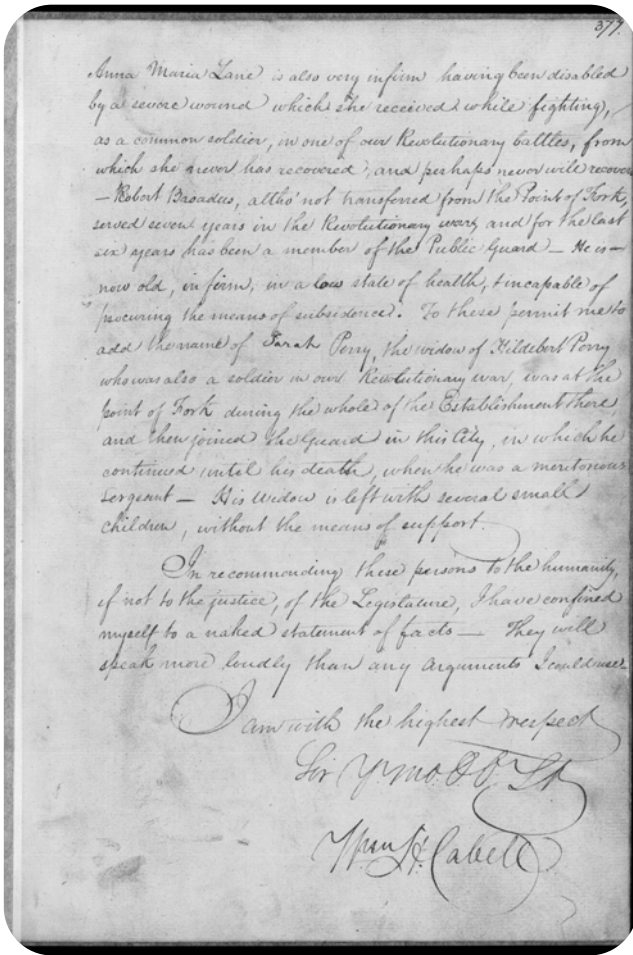 377.
Anna Maria Lane is also very infirm having been disabled
by a severe wound which she received while fighting,
as a common soldier, in one of our Revolutionary battles, from
which she never has recovered, and perhaps never will recover
— Robert Broadus, altho' not transferred from the Point of Fork,
served seven years in the Revolutionary war, and for the last
six years has been a member of the Public Guard — He is —
now old, infirm, in a low state of health, & incapable of
procuring the means of subsistence. To these permit me to
add the name of Sarah Perry, the widow of Hildebert Perry
who was also a soldier in our Revolutionary war, was at the
point of Fork during the whole of the Establishment there,
and then joined the Guard in this City, in which he
continued until his death, when he was a meritorious
Sergeant — His Widow is left with several small
children, without the means of support.
In recommending these persons to the humanity,
if not to the justice, of the Legislature, I have confined
myself to a naked statement of facts — They will
speak more loudly than any arguments I could use —
I am with the highest respect
Sir Yr. mo. O. St
Wm H. Cabell